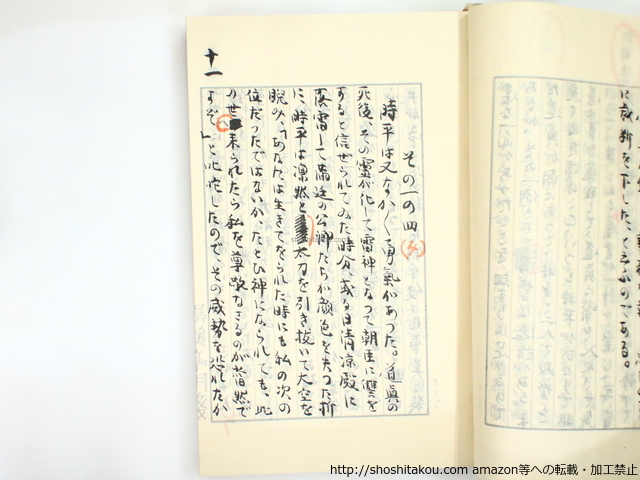 に裁斷を下した、と云ふのである。
十一
その一の四
時平は又なか／＼勇氣があつた。道眞の
死後、その靈が化して雷神となつて朝臣に讐を
すると信ぜられてゐた時分、或る日淸涼殿に
落雷して滿廷の公卿たちが顏色を失つた折
に、時平は凛然と太刀を引き拔いて大空を
睨み、「あなたは生きてをられた時にも私の次の
位だつたではないか、たとひ神になられても、此
の世へ來られたら私を尊敬なさるのが當然で
すぞ」と叱咤したので、その威勢を恐れたか
http://shoshitakou.com amazon等への転載・加工禁止